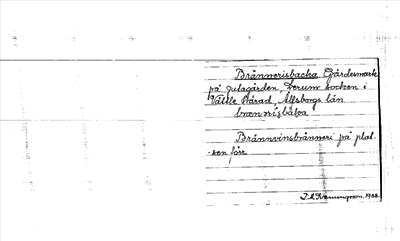 Brännerisbacka Gärdesmark
på Julagården, Lerum socken i
Vättle härad, Älfsborgs län
brænnisbaka
Brännvinsbränneri på plat-
sen förr
1933.